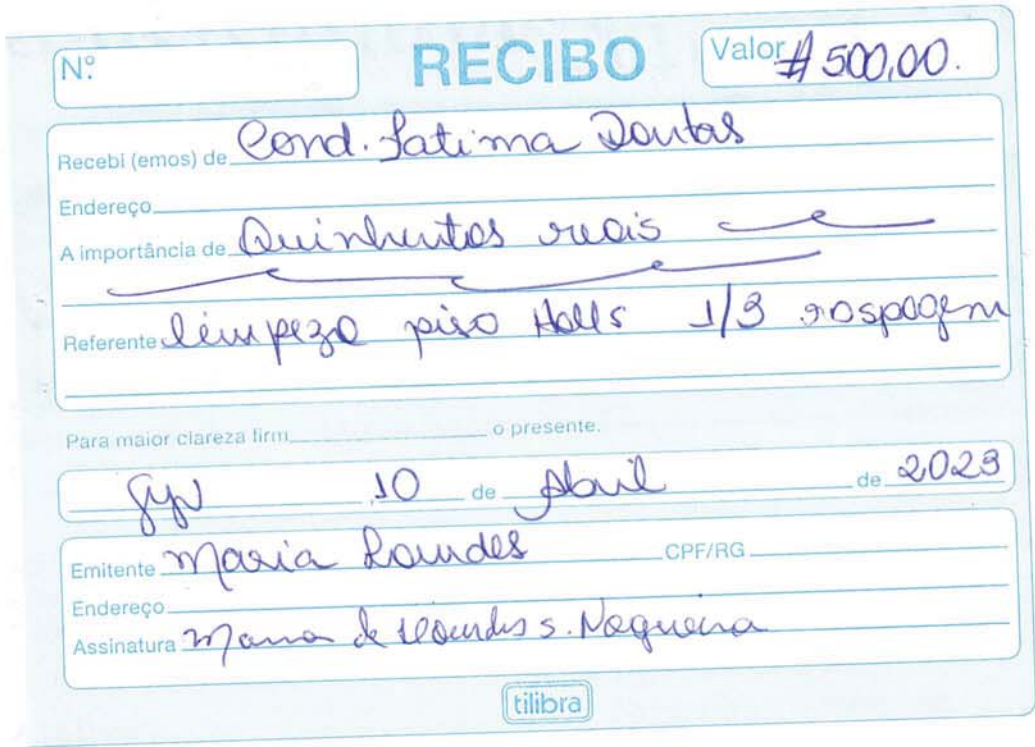 Nº RECIBO Valor # 500,00.
Recebi (emos) de Cond. Fatima Dantas
Endereço
A importância de Quinhentos reais
Referente limpeza piso Halls 1/3 raspagem
Para maior clareza firm o presente.
Gyn ,10 de Abril de 2023
Emitente Maria Lourdes CPF/RG
Endereço
Assinatura Maria de Lourdes S. Nogueira
tilibra